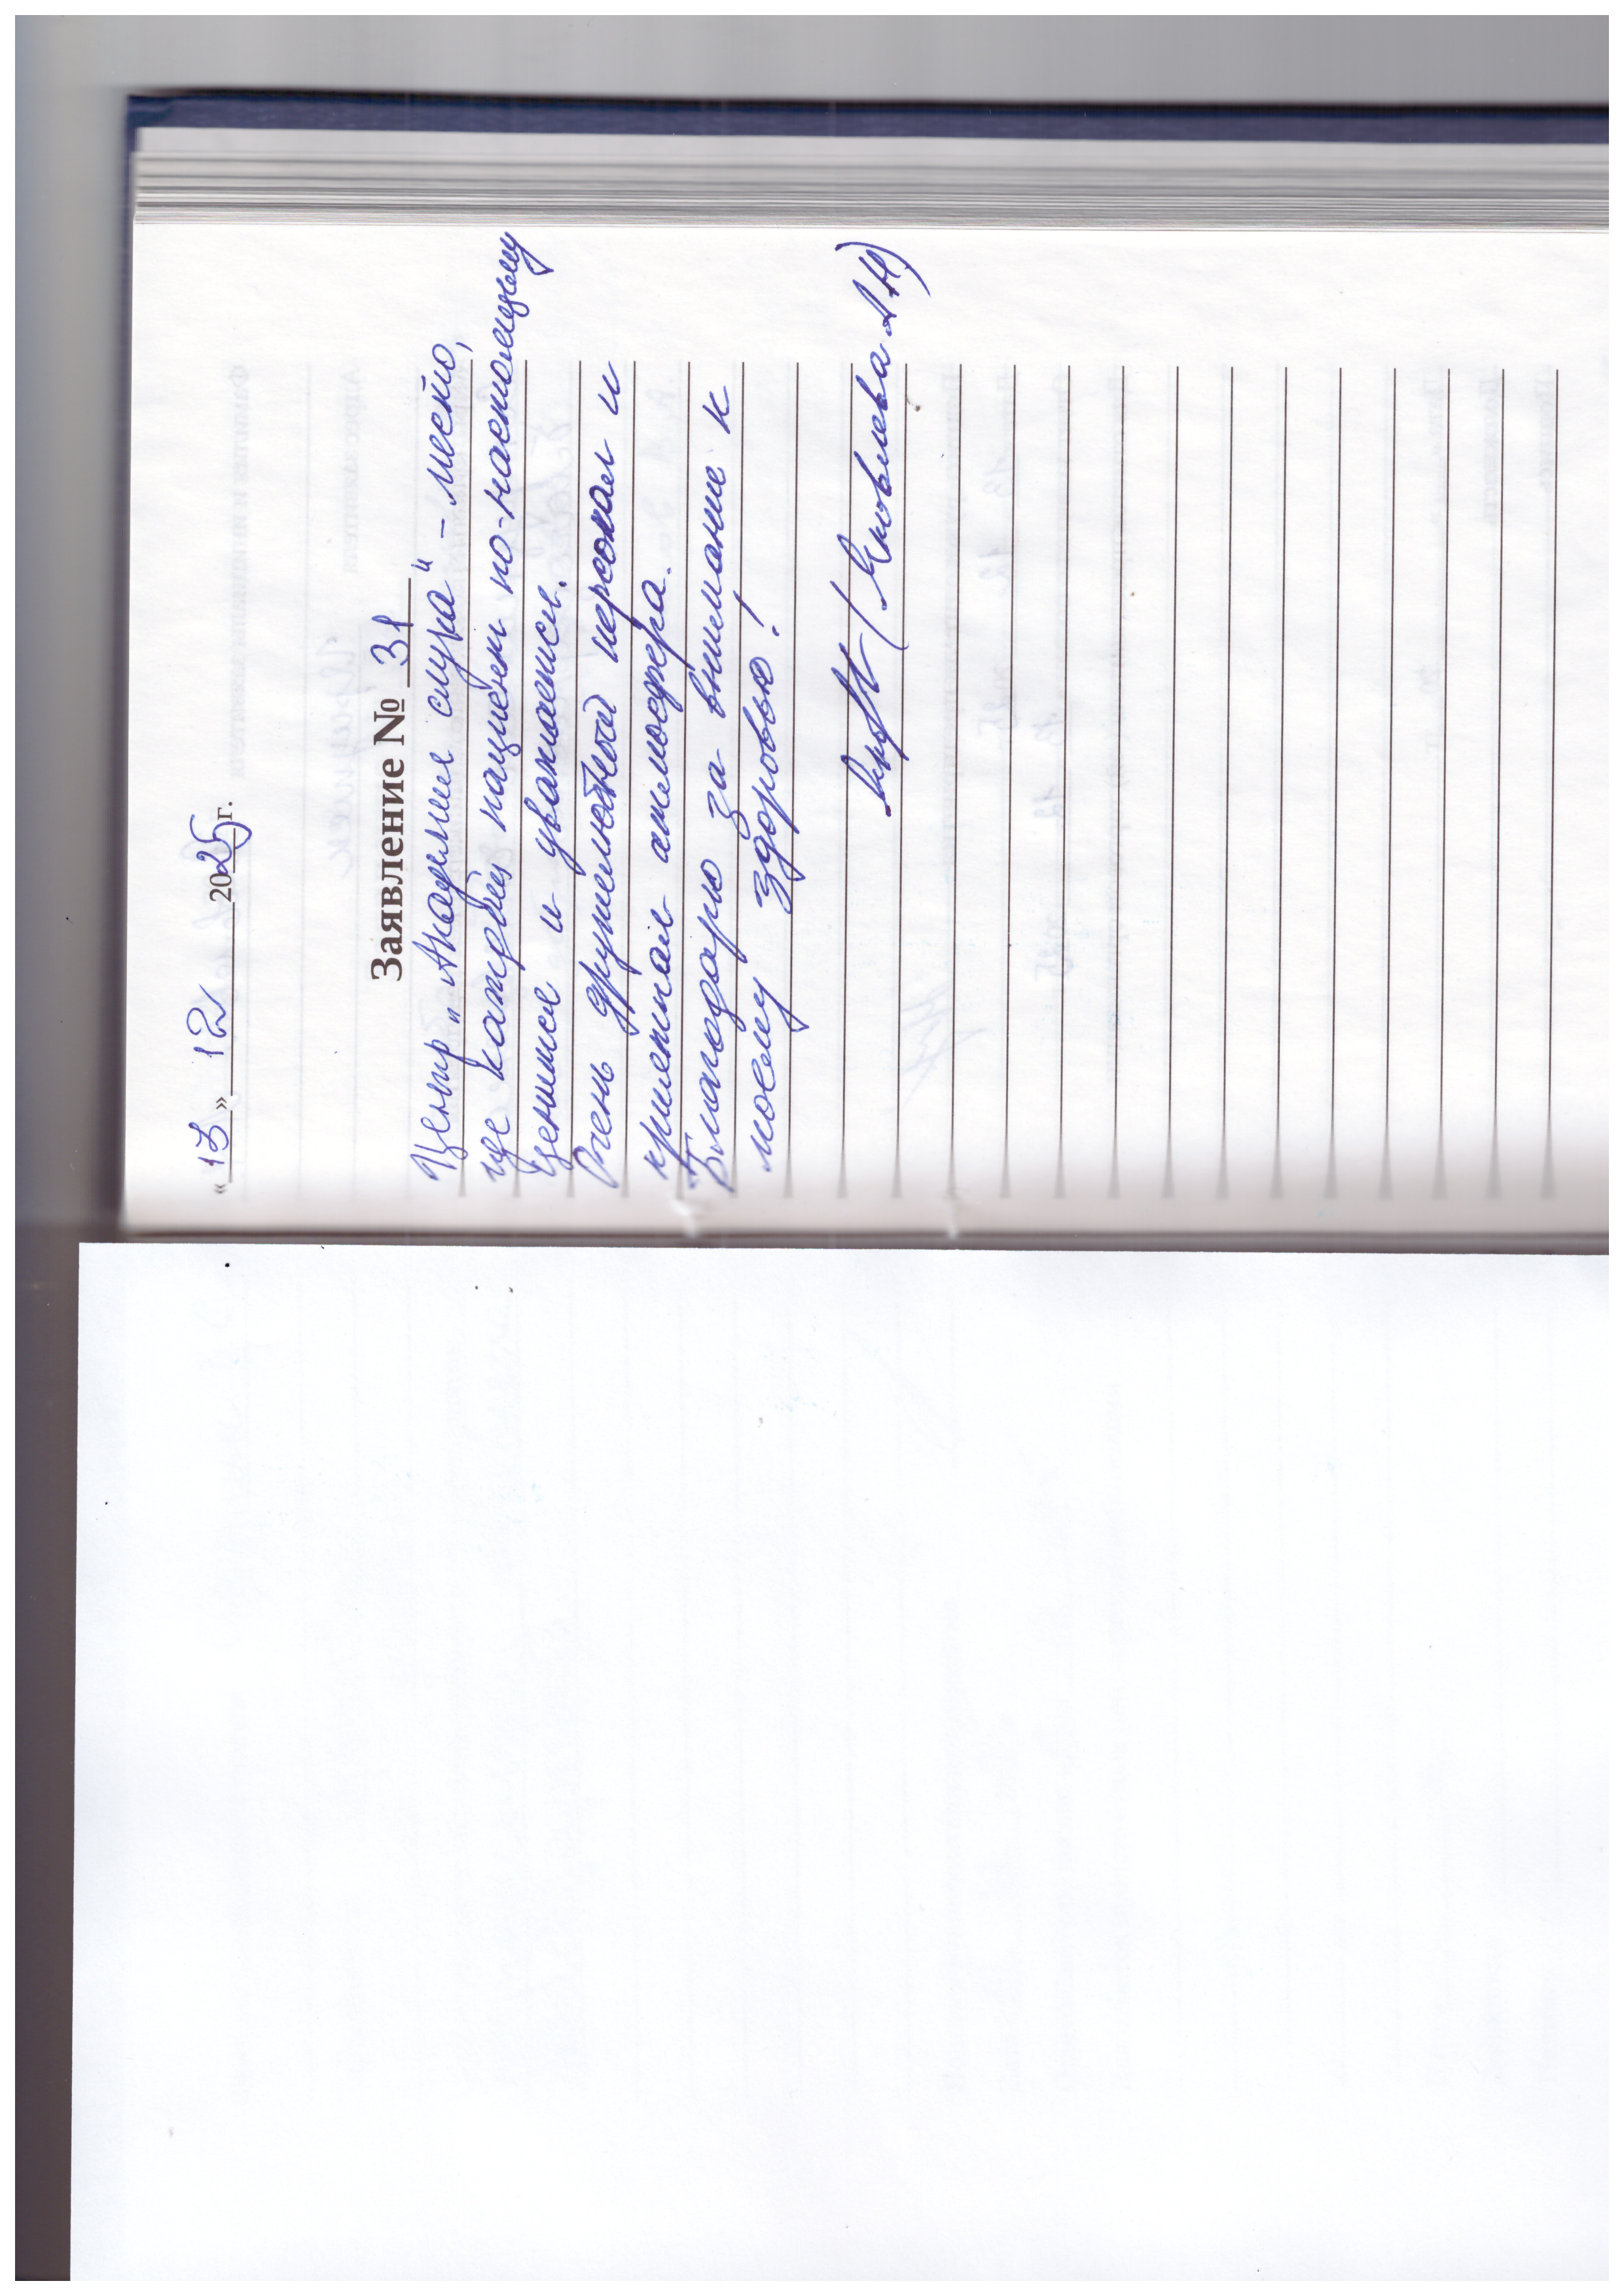 «13» 12 2025 г.
Заявление № 31
Центр „Академия слуха" – место,
где каждый пациент по-настоящему
ценится и уважается.
Очень дружелюбной персонал и
приятная атмосфера.
Благодарю за внимание к
моему здоровью!
(Яковлева А.Н)